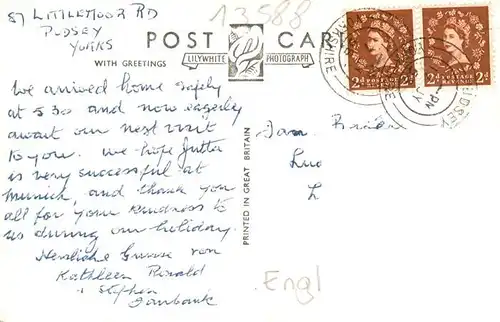 87 LITTLEMOOR RD
PUDSEY
YORKS
13588
POST CARD
WITH GREETINGS
LILYWHITE PHOTOGRAPH
2d POSTAGE REVENUE 2d
2d POSTAGE REVENUE 2d
PUDSEY
We arrived home safely
at 5 30 and now eagerly
await our next visit
to you. We hope Jutta
is very successful at
Munich, and thank you
all for your kindness to
us during our holiday.
Herzliche Grüsse von
Kathleen Ronald
+ Stephen
Fairbank
PRINTED IN GREAT BRITAIN
Fam.
L
Engl